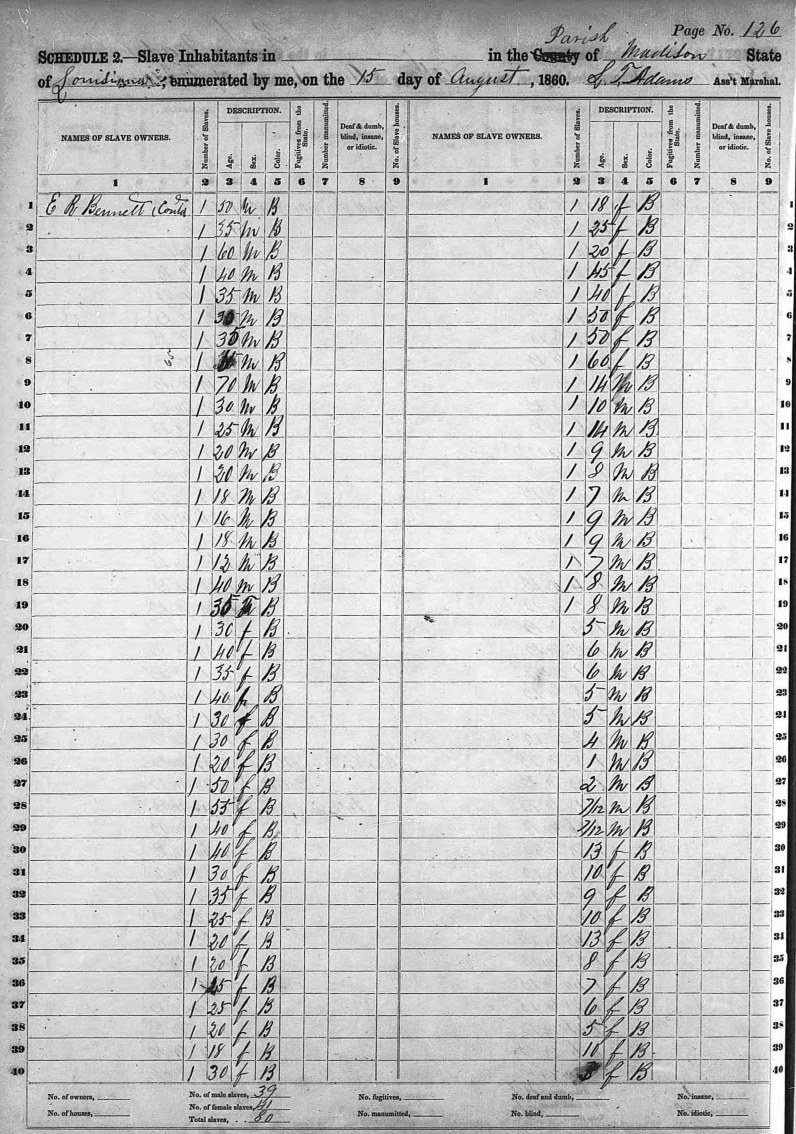 Page No. 126
SCHEDULE 2.—Slave Inhabitants in in the County Parish of Madison State
of Louisiana, enumerated by me, on the 15 day of August, 1860. L. T. Adams Ass't Marshal.
NAMES OF SLAVE OWNERS. Number of Slaves. DESCRIPTION. Age. Sex. Color. Fugitives from the State. Number manumitted. Deaf & dumb, blind, insane, or idiotic. No. of Slave houses. NAMES OF SLAVE OWNERS. Number of Slaves. DESCRIPTION. Age. Sex. Color. Fugitives from the State. Number manumitted. Deaf & dumb, blind, insane, or idiotic. No. of Slave houses.
1 2 3 4 5 6 7 8 9 1 2 3 4 5 6 7 8 9
1 E R Bennett, Contd 1 50 M B 1 18 f B 1
2 1 35 M B 1 25 f B 2
3 1 60 M B 1 20 f B 3
4 1 40 M B 1 45 f B 4
5 1 35 M B 1 40 f B 5
6 1 M B 1 50 f B 6
7 1 35 M B 1 50 f B 7
8 1 M B 1 60 f B 8
9 1 70 M B 1 14 M B 9
10 1 30 M B 1 10 M B 10
11 1 25 M B 1 14 M B 11
12 1 20 M B 1 9 M B 12
13 1 20 M B 1 8 M B 13
14 1 18 M B 1 7 M B 14
15 1 16 M B 1 9 M B 15
16 1 18 M B 1 9 M B 16
17 1 12 M B 1 7 M B 17
18 1 40 M B 1 8 M B 18
19 1 35 B 1 8 M B 19
20 1 30 f B 5 M B 20
21 1 40 f B 6 M B 21
22 1 35 f B 6 M B 22
23 1 40 f B 5 M B 23
24 1 30 f B 5 M B 24
25 1 30 f B 4 M B 25
26 1 20 f B 1 M B 26
27 1 50 f B 2 M B 27
28 1 55 f B 7/12 M B 28
29 1 40 f B M B 29
30 1 40 f B 13 f B 30
31 1 30 f B 10 f B 31
32 1 35 f B 9 f B 32
33 1 25 f B 10 f B 33
34 1 20 f B 13 f B 34
35 1 20 f B 8 f B 35
36 1 f B 7 f B 36
37 1 25 f B 6 f B 37
38 1 20 f B 5 f B 38
39 1 18 f B 10 f B 39
40 1 30 f B 3 f B 40
No. of owners, No. of male slaves, 39 No. fugitives, No. deaf and dumb, No. insane,
No. of houses, No. of female slaves, 41 No. manumitted, No. blind, No. idiotic,
Total slaves, 80